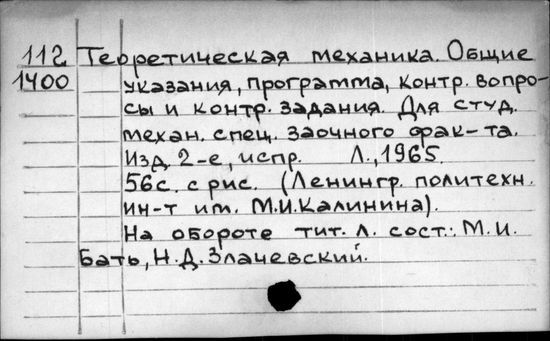 112 Теоретическая механика. Общие
1400 указания, программа, контр. вопро-
сы и контр. задания. Для студ.
механ. спец. заочного фак-та.
Изд 2-е, испр. Л., 1965.
56с. с рис. (Ленингр. политехн.
ин-т им. М.И.Калинина).
На обороте тит. л. сост.: М.И.
Бать, Н.Д. Злачевский.